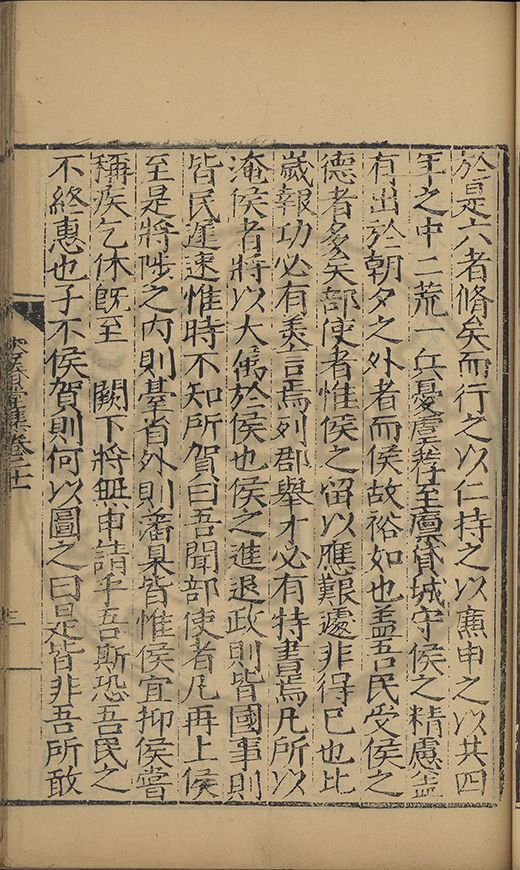 於是六者脩矣而行之以仁持之以廉申之以其四
年之中二荒一兵憂虞荐至廪貸城守侯之精慮盖
有出於朝夕之外者而侯故裕如也盖吾民受侯之
德者多矣部使者惟侯之留以應艱遽非得已也比
歲報功必有羙言焉列郡舉才必有特書焉凡所以
淹侯者將以大萬於侯也侯之進退政則皆國事則
皆民遲速惟時不知所賀曰吾聞部使者凡再上侯
至是將陟之内則臺省外則潘臬皆惟侯宜抑侯嘗
稱疾乞休旣至　闕下將無申請乎吾斯恐吾民之
不終惠也子不侯賀則何以圖之曰是皆非吾所敢
卷二十
三